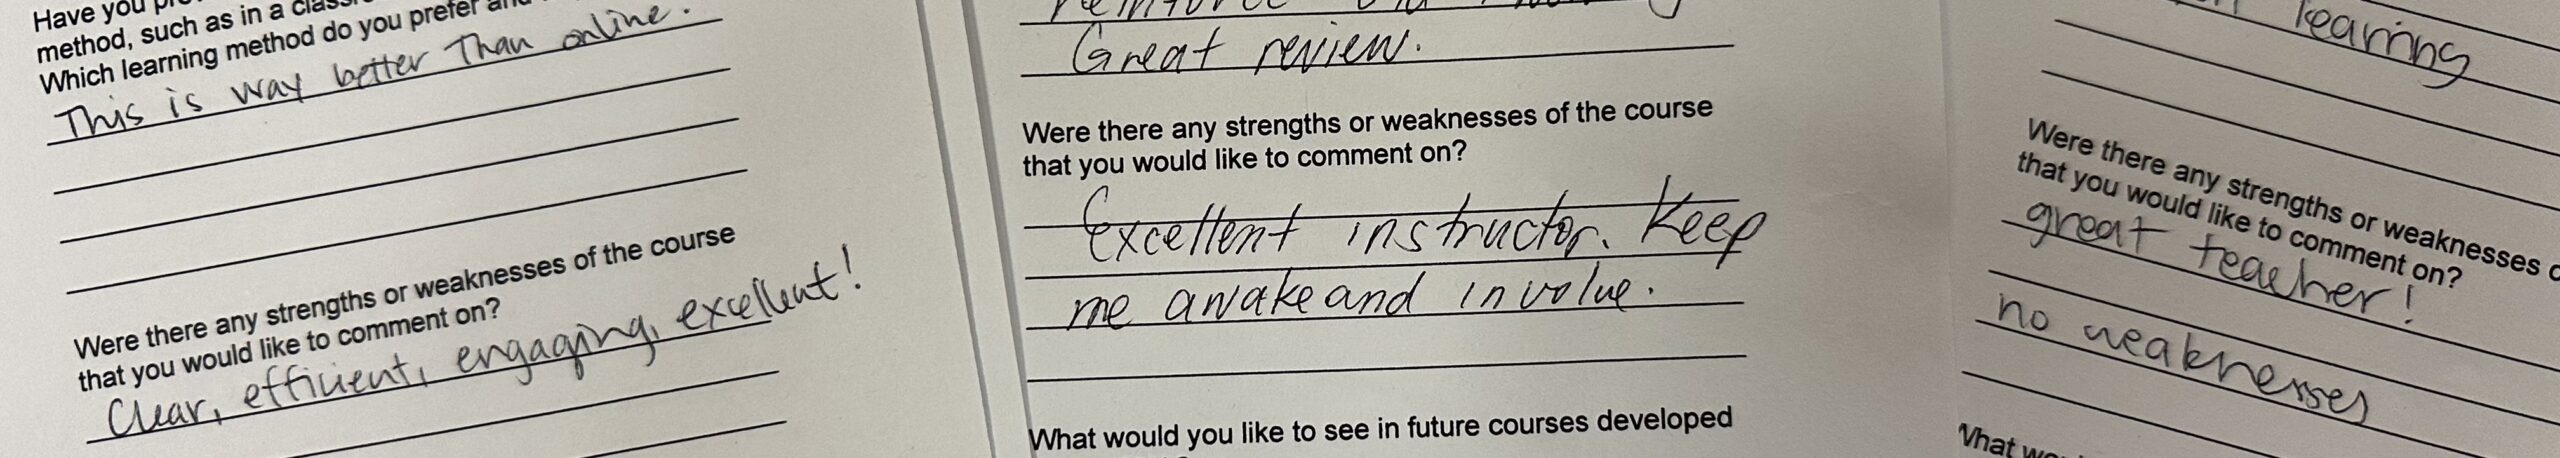 Have you
method, such as in a
Which learning method do you prefer
This is way better Than online.
Were there any strengths or weaknesses of the course
that you would like to comment on?
Clear, efficient, engaging, excellent!
Great review.
Were there any strengths or weaknesses of the course
that you would like to comment on?
Excellent instructor. Keep
me awake and involve.
What would you like to see in future courses developed
Were there any strengths or weaknesses
that you would like to comment on?
great teacher!
no weaknesses
What